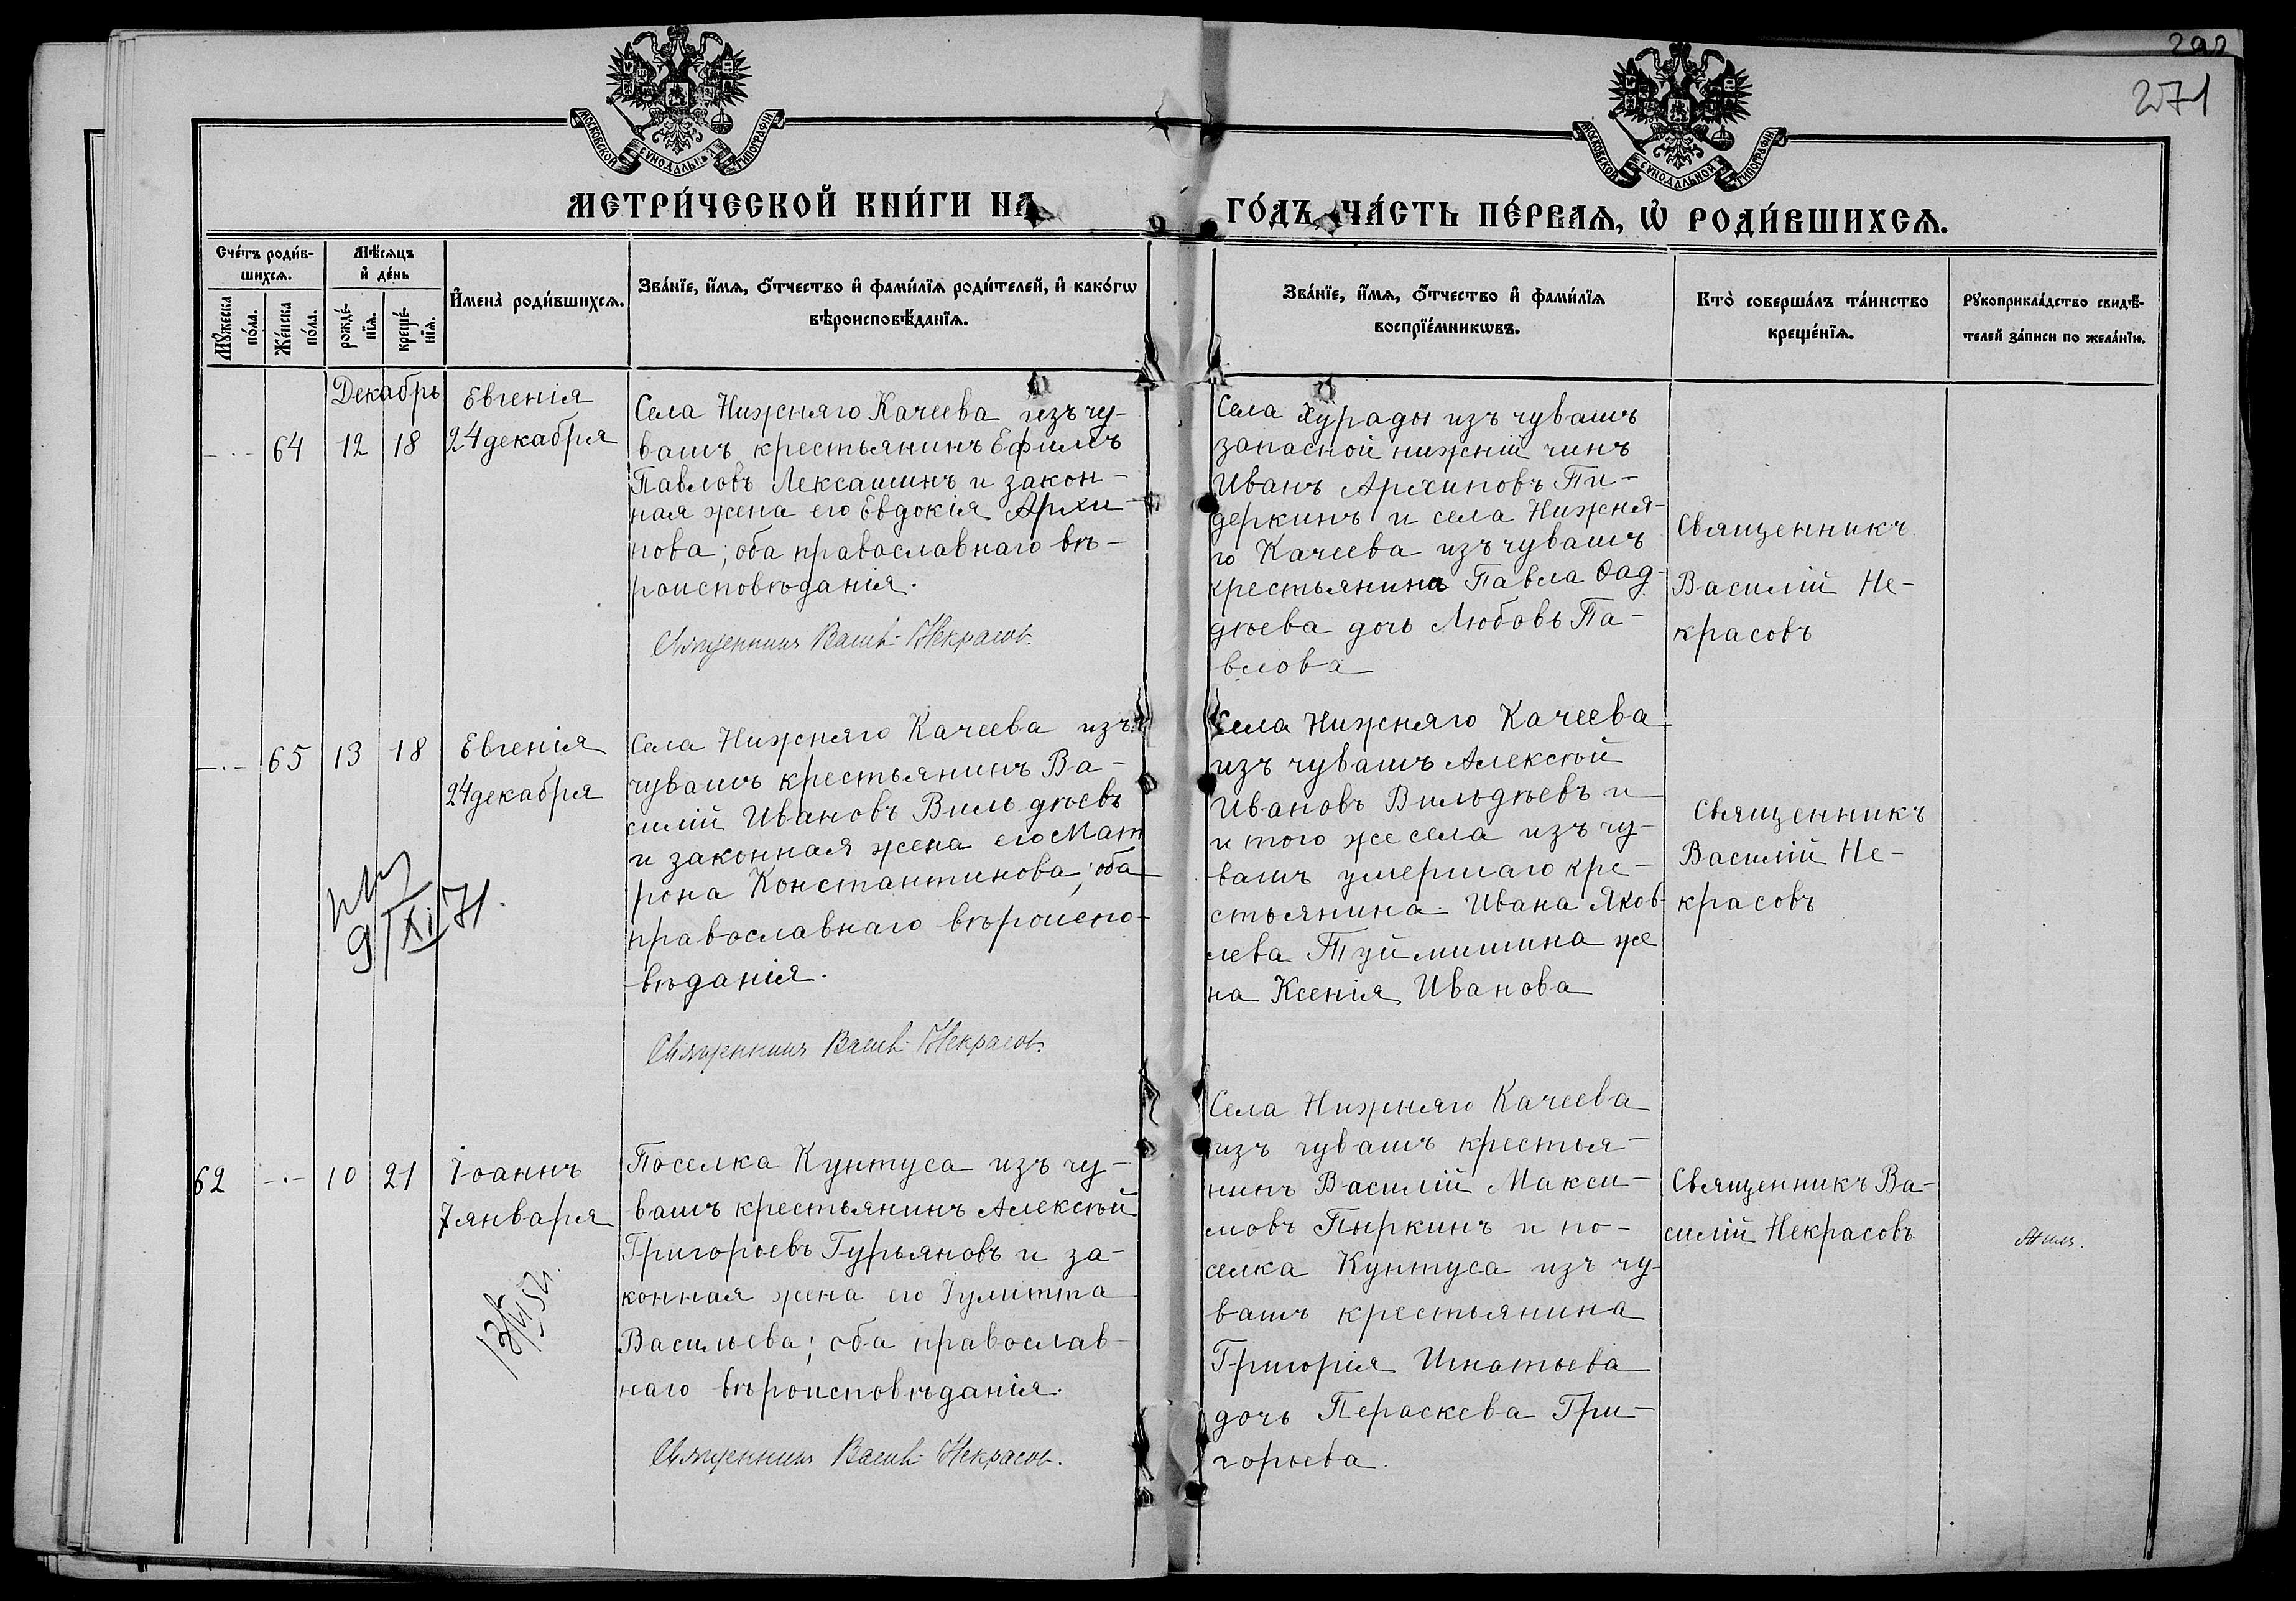 292
271
МОСКОВСКОЙ СѴНОДАЛЬНОЙ ТИПОГРАФІИ
МОСКОВСКОЙ СѴНОДАЛЬНОЙ ТИПОГРАФІИ
МЕТРИ́ЧЕСКОЙ КНИ́ГИ НА ГО́ДЪ, ЧА́СТЬ ПЕ́РВАѦ, Ѡ҆ РОДИ́ВШИХСѦ.
Сче́тъ роди́в-
шихсѧ.
Мꙋ́жеска
по́ла.
Же́нска
по́ла.
Мѣ́сѧцъ
и҆ де́нь
рожде́-
нїѧ.
креще́-
нїѧ.
И҆мена̀ роди́вшихсѧ.
Зва́нїе, и҆́мѧ, ѻ҆́тчество и҆ фами́лїѧ роди́телей, и҆ како́гѡ
вѣроисповѣ́данїѧ.
Зва́нїе, и҆́мѧ, ѻ҆́тчество и҆ фами́лїѧ
воспрїе́мникѡвъ.
Кто̀ соверша́лъ та́инство
креще́нїѧ.
Рꙋкоприкла́дство свидѣ́-
телей за́писи по жела́нїю.
Декабрь
64 12 18
Евгенія
24 декабря
Села Нижняго Качеева изъ чу-
вашъ крестьянинъ Ефимъ
Павловъ Лексашинъ и закон-
ная жена его Евдокія Архи-
пова; оба православнаго вѣ-
роисповѣданія.
Священникъ Васил. Некрасовъ.
Села Хурады изъ чувашъ
запасной нижній чинъ
Иванъ Архиповъ Пи-
деркинъ и села Нижня-
го Качеева изъ чувашъ
крестьянина Павла Фад-
дѣева дочь Любовь Па-
влова
Священникъ
Василій Не-
красовъ
65 13 18
Евгенія
24 декабря
9/XI 71.
Села Нижняго Качеева изъ
чувашъ крестьянинъ Ва-
силій Ивановъ Вильдѣевъ
и законная жена его Мат
рона Константинова; оба
православнаго вѣроиспо-
вѣданія.
Священникъ Васил. Некрасовъ.
Села Нижняго Качеева
изъ чувашъ Алексѣй
Ивановъ Вильдѣевъ и
и того же села изъ чу-
вашъ умершаго кре-
стьянина Ивана Яков
лева Туймишина же
на Ксенія Иванова
Священникъ
Василій Не-
красовъ
62 10 21
Іоаннъ
7 января
Поселка Кунтуса изъ чу-
вашъ крестьянинъ Алексѣй
Григорьевъ Гурьяновъ и за-
конная жена его Іулитта
Васильева; оба православ-
наго вѣроисповѣданія.
Священникъ Васил. Некрасовъ.
Села Нижняго Качеева
изъ чувашъ крестья-
нинъ Василій Макси-
мовъ Пыркинъ и по-
селка Кунтуса изъ чу-
вашъ крестьянина
Григорія Игнатьева
дочь Пераскева Гри-
горьева.
Священникъ Ва-
силій Некрасовъ